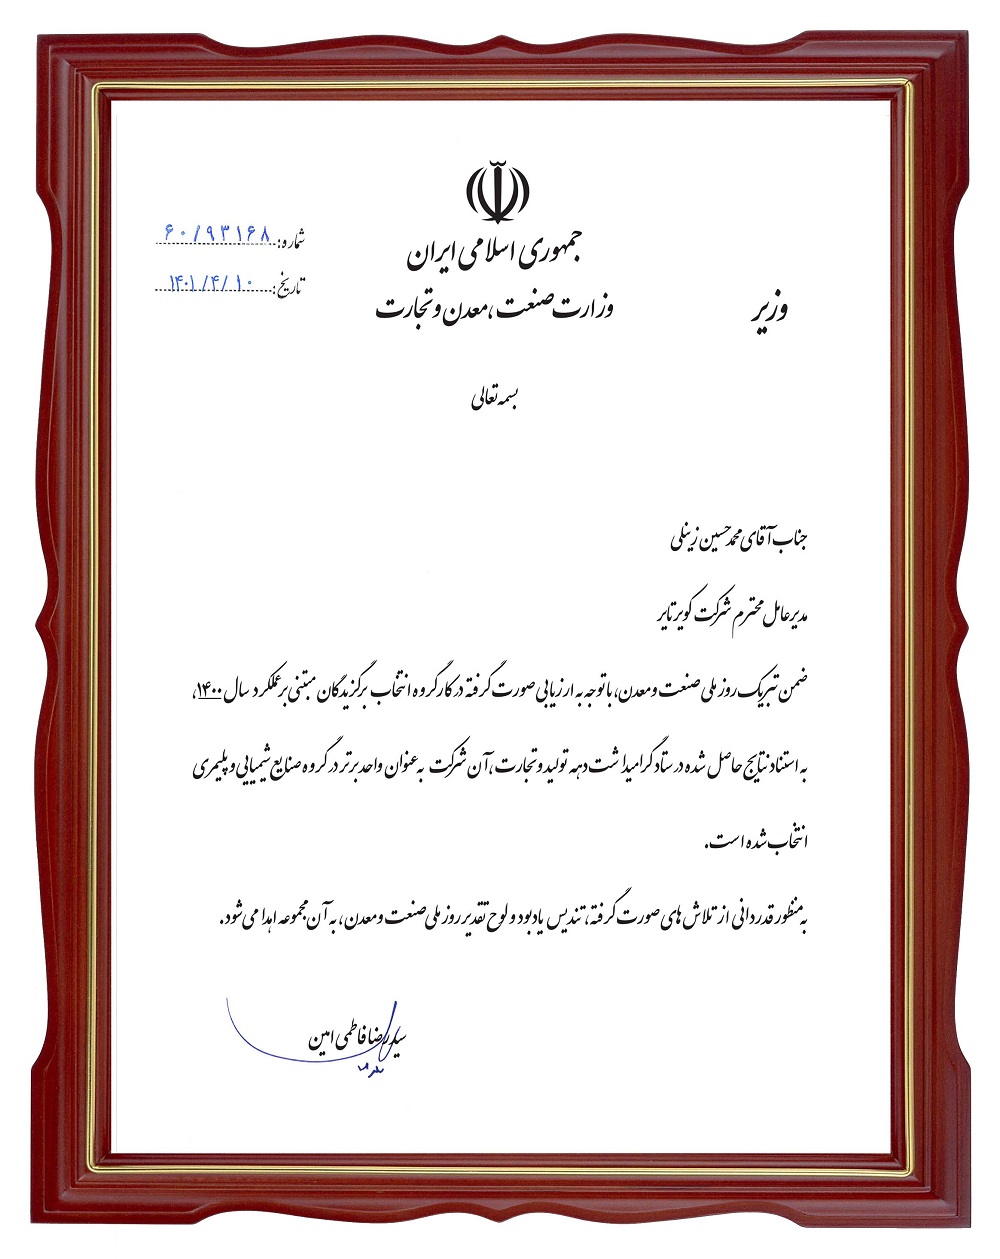 جمهوری اسلامی ایران
وزارت صنعت، معدن و تجارت
وزیر
شماره: ۶۰/۹۳۱۶۸
تاریخ: ۱۴۰۱/۴/۱۰
بسمه تعالی
جناب آقای محمدحسین زینلی
مدیرعامل محترم شرکت کویر تایر
ضمن تبریک روز ملی صنعت و معدن، با توجه به ارزیابی صورت گرفته در کارگروه انتخاب برگزیدگان مبتنی بر عملکرد سال ۱۴۰۰،
به استناد نتایج حاصل شده در ستاد گرامیداشت دهه تولید و تجارت، آن شرکت به عنوان واحد برتر در گروه صنایع شیمیایی و پلیمری
انتخاب شده است.
به منظور قدردانی از تلاش های صورت گرفته، تندیس یادبود و لوح تقدیر روز ملی صنعت و معدن، به آن مجموعه اهدا می شود.
سیدرضا فاطمی امین